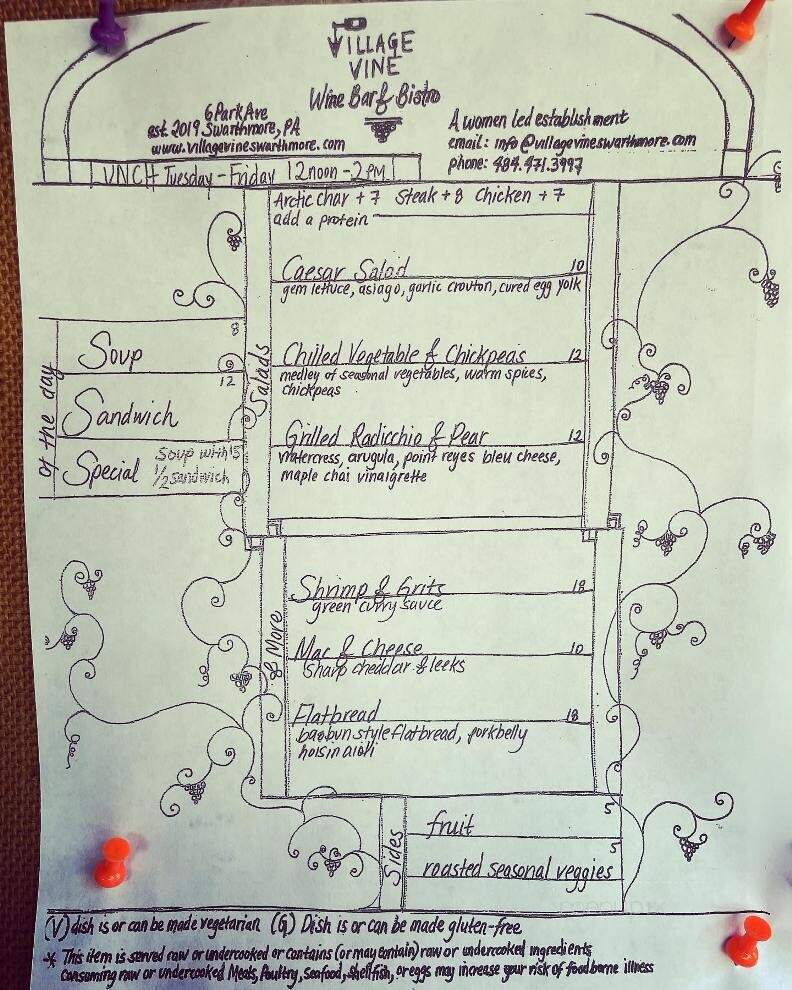 VILLAGE
VINE
Wine Bar & Bistro
6 Park Ave
est. 2019 Swarthmore, PA
www.villagevineswarthmore.com
A women led establishment
email: info@villagevineswarthmore.com
phone: 484.471.3997
LUNCH Tuesday - Friday 12noon - 2PM
Arctic char + 7 Steak + 8 Chicken + 7
add a protein
Salads
Caesar Salad 10
gem lettuce, asiago, garlic crouton, cured egg yolk
Chilled Vegetable & Chickpeas 12
medley of seasonal vegetables, warm spices,
chickpeas
Grilled Radicchio & Pear 12
watercress, arugula, point reyes bleu cheese,
maple chai vinaigrette
of the day
Soup 8
Sandwich 12
Special Soup with 1/2 sandwich 15
& More
Shrimp & Grits 18
green curry sauce
Mac & Cheese 10
Sharp cheddar & leeks
Flatbread 18
baobun style flatbread, porkbelly
hoisin aioli
Sides
fruit 5
roasted seasonal veggies 5
(V) dish is or can be made vegetarian (G) Dish is or can be made gluten-free
* This item is served raw or undercooked or contains (or may contain) raw or undercooked ingredients
consuming raw or undercooked Meats, Poultry, Seafood, Shellfish, or eggs may increase your risk of foodborne illness